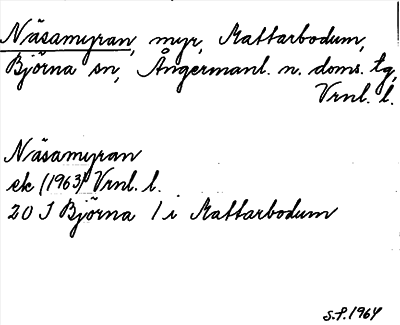 Näsamyran, myr, Mattarbodum,
Björna sn, Ångermanl. n. doms. tg,
Vrnl. l.
Näsamyran
ek (1963) Vrnl. l.
20 J Björna 1 i Mattarbodum
S.P. 1964